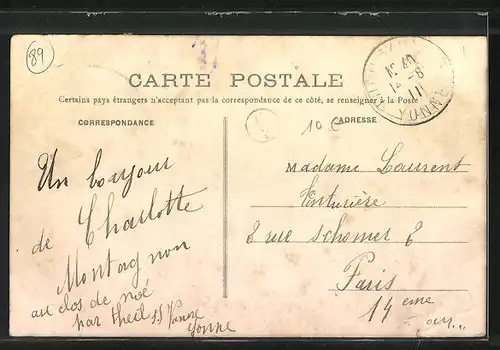 89
CARTE POSTALE
Certains pays étrangers n'acceptant pas la correspondance de ce côté, se renseigner à la Poste
CORRESPONDANCE
ADRESSE
10
11
YONNE
Un bonjour
de Charlotte
Montagnon
au clos de noé
par theil s/s Vanne
Yonne
Madame Laurent
8 rue Schomer 8
Paris
14eme